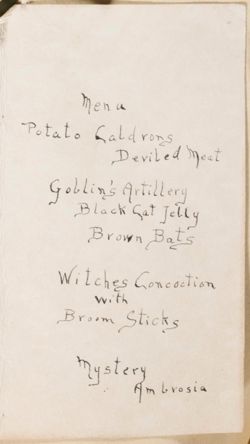 Menu
Potato Caldrons
Deviled Meat
Goblin's Artillery
Black Cat Jelly
Brown Bats
Witches Concoction
with
Broom Sticks
Mystery
Ambrosia